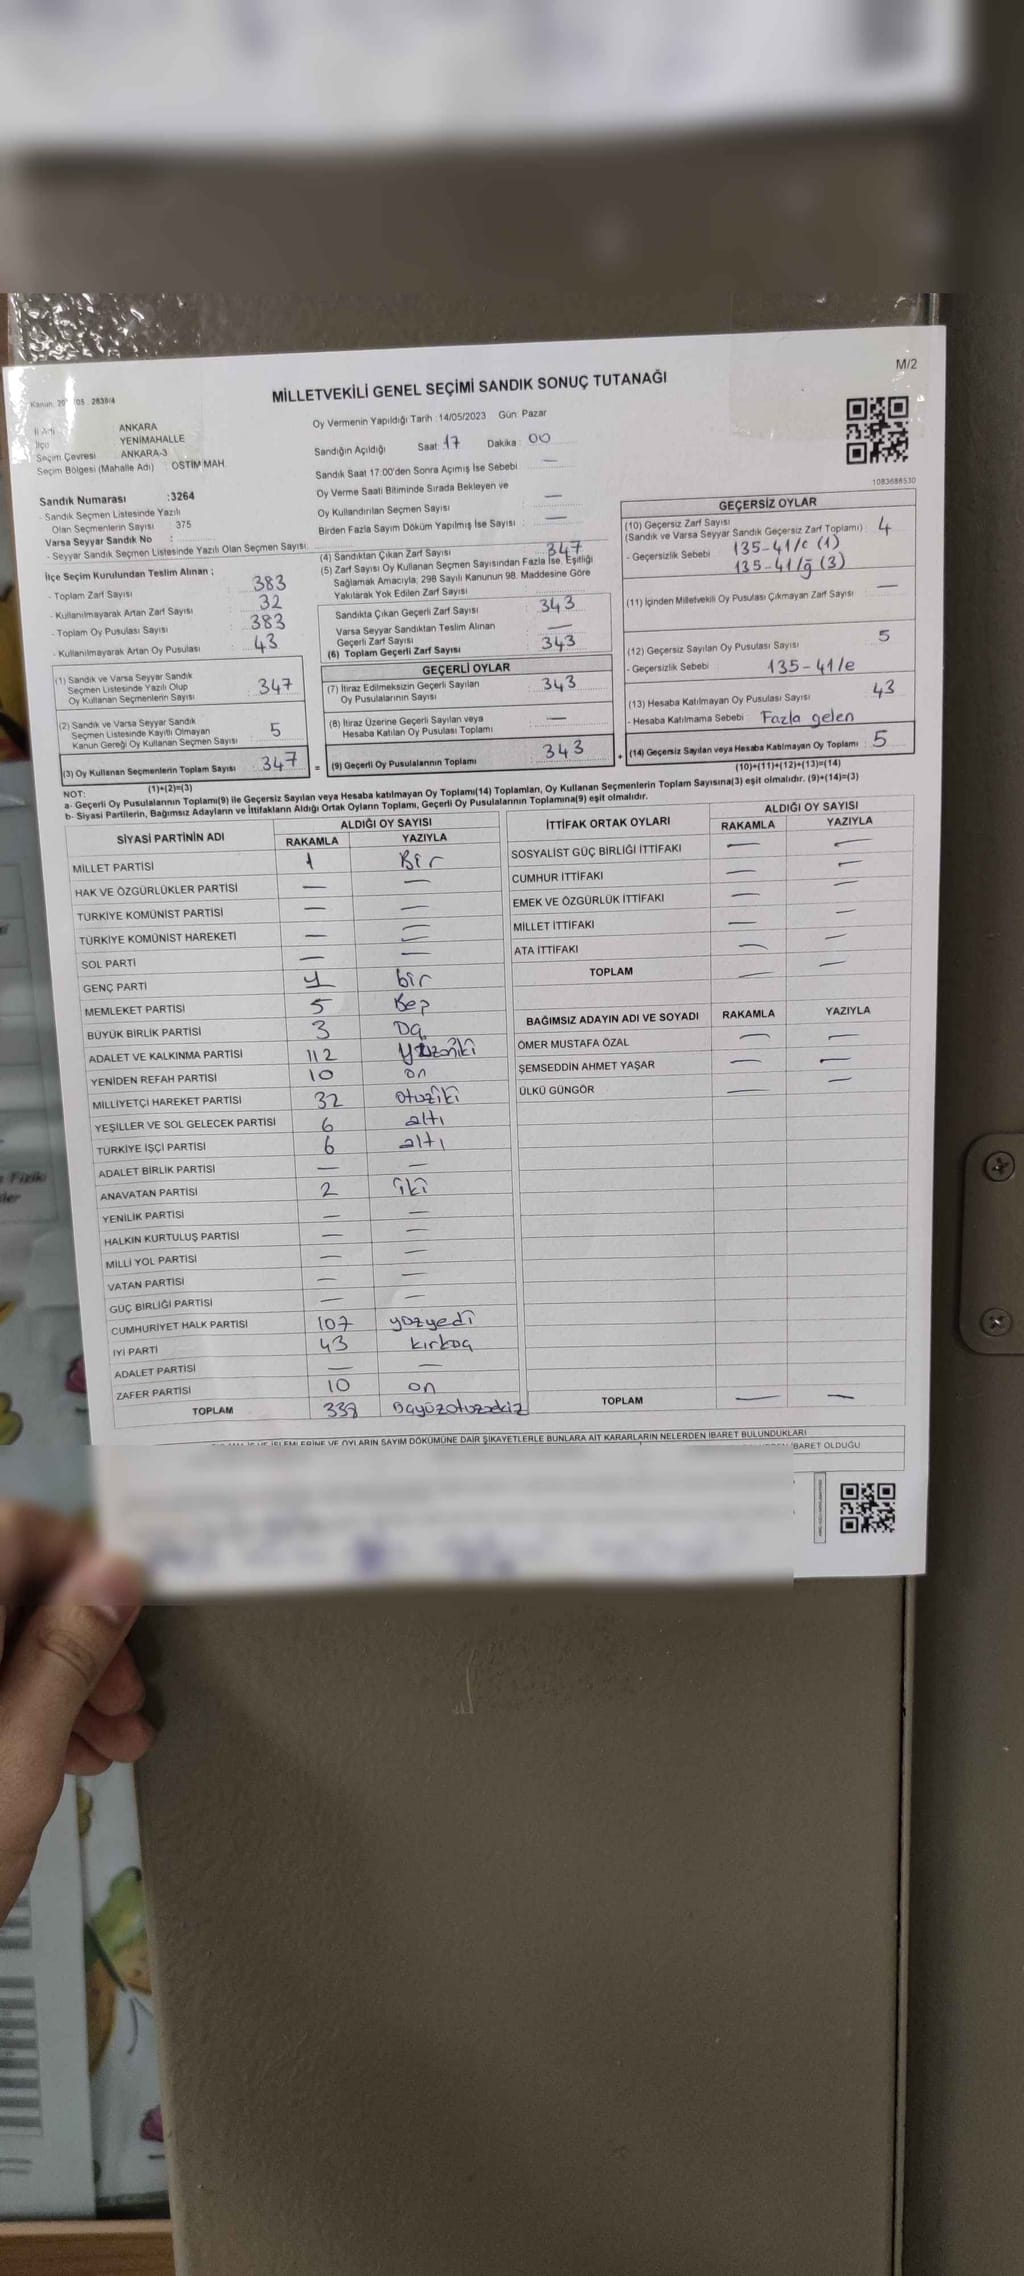 M/2
MİLLETVEKİLİ GENEL SEÇİMİ SANDIK SONUÇ TUTANAĞI
İl Adı : ANKARA
İlçe : YENİMAHALLE
Seçim Çevresi : ANKARA-3
Seçim Bölgesi (Mahalle Adı) : OSTİM MAH.
Sandık Numarası :3264
- Sandık Seçmen Listesinde Yazılı
Olan Seçmenlerin Sayısı : 375
Varsa Seyyar Sandık No :
- Seyyar Sandık Seçmen Listesinde Yazılı Olan Seçmen Sayısı:
Oy Vermenin Yapıldığı Tarih : 14/05/2023 Gün: Pazar
Sandığın Açıldığı Saat: 17 Dakika : 00
Sandık Saat 17:00'den Sonra Açımış İse Sebebi : —
Oy Verme Saati Bitiminde Sırada Bekleyen ve
Oy Kullandırılan Seçmen Sayısı : —
Birden Fazla Sayım Döküm Yapılmış İse Sayısı : —
1083688530
İlçe Seçim Kurulundan Teslim Alınan ;
- Toplam Zarf Sayısı : 383
- Kullanılmayarak Artan Zarf Sayısı : 32
- Toplam Oy Pusulası Sayısı : 383
- Kullanılmayarak Artan Oy Pusulası : 43
(1) Sandık ve Varsa Seyyar Sandık
Seçmen Listesinde Yazılı Olup
Oy Kullanan Seçmenlerin Sayısı : 347
(2) Sandık ve Varsa Seyyar Sandık
Seçmen Listesinde Kayıtlı Olmayan
Kanun Gereği Oy Kullanan Seçmen Sayısı : 5
(3) Oy Kullanan Seçmenlerin Toplam Sayısı : 347
(1)+(2)=(3)
(4) Sandıktan Çıkan Zarf Sayısı : 347
(5) Zarf Sayısı Oy Kullanan Seçmen Sayısından Fazla İse, Eşitliği
Sağlamak Amacıyla; 298 Sayılı Kanunun 98. Maddesine Göre
Yakılarak Yok Edilen Zarf Sayısı :
Sandıkta Çıkan Geçerli Zarf Sayısı : 343
Varsa Seyyar Sandıktan Teslim Alınan
Geçerli Zarf Sayısı : —
(6) Toplam Geçerli Zarf Sayısı : 343
GEÇERLİ OYLAR
(7) İtiraz Edilmeksizin Geçerli Sayılan
Oy Pusulalarının Sayısı : 343
(8) İtiraz Üzerine Geçerli Sayılan veya
Hesaba Katılan Oy Pusulası Toplamı : —
= (9) Geçerli Oy Pusulalarının Toplamı : 343 +
GEÇERSİZ OYLAR
(10) Geçersiz Zarf Sayısı
(Sandık ve Varsa Seyyar Sandık Geçersiz Zarf Toplamı) : 4
- Geçersizlik Sebebi : 135-41/c (1)
135-41/ğ (3)
(11) İçinden Milletvekili Oy Pusulası Çıkmayan Zarf Sayısı : —
(12) Geçersiz Sayılan Oy Pusulası Sayısı : 5
- Geçersizlik Sebebi : 135-41/e
(13) Hesaba Katılmayan Oy Pusulası Sayısı : 43
- Hesaba Katılmama Sebebi : Fazla gelen
(14) Geçersiz Sayılan veya Hesaba Katılmayan Oy Toplamı : 5
(10)+(11)+(12)+(13)=(14)
NOT:
a- Geçerli Oy Pusulalarının Toplamı(9) ile Geçersiz Sayılan veya Hesaba katılmayan Oy Toplamı(14) Toplamları, Oy Kullanan Seçmenlerin Toplam Sayısına(3) eşit olmalıdır. (9)+(14)=(3)
b- Siyasi Partilerin, Bağımsız Adayların ve İttifakların Aldığı Ortak Oyların Toplamı, Geçerli Oy Pusulalarının Toplamına(9) eşit olmalıdır.
SİYASİ PARTİNİN ADI ALDIĞI OY SAYISI
RAKAMLA YAZIYLA
MİLLET PARTİSİ 1 Bir
HAK VE ÖZGÜRLÜKLER PARTİSİ — —
TÜRKİYE KOMÜNİST PARTİSİ — —
TÜRKİYE KOMÜNİST HAREKETİ — —
SOL PARTİ — —
GENÇ PARTİ 1 bir
MEMLEKET PARTİSİ 5 Beş
BÜYÜK BİRLİK PARTİSİ 3 Üç
ADALET VE KALKINMA PARTİSİ 112
YENİDEN REFAH PARTİSİ 10 on
MİLLİYETÇİ HAREKET PARTİSİ 32 otuziki
YEŞİLLER VE SOL GELECEK PARTİSİ 6 altı
TÜRKİYE İŞÇİ PARTİSİ 6 altı
ADALET BİRLİK PARTİSİ — —
ANAVATAN PARTİSİ 2 iki
YENİLİK PARTİSİ — —
HALKIN KURTULUŞ PARTİSİ — —
MİLLİ YOL PARTİSİ — —
VATAN PARTİSİ — —
GÜÇ BİRLİĞİ PARTİSİ — —
CUMHURİYET HALK PARTİSİ 107 yüzyedi
İYİ PARTİ 43 kırküç
ADALET PARTİSİ — —
ZAFER PARTİSİ 10 on
TOPLAM 338 üçyüzotuzsekiz
İTTİFAK ORTAK OYLARI ALDIĞI OY SAYISI
RAKAMLA YAZIYLA
SOSYALİST GÜÇ BİRLİĞİ İTTİFAKI — —
CUMHUR İTTİFAKI — —
EMEK VE ÖZGÜRLÜK İTTİFAKI — —
MİLLET İTTİFAKI — —
ATA İTTİFAKI — —
TOPLAM — —
BAĞIMSIZ ADAYIN ADI VE SOYADI RAKAMLA YAZIYLA
ÖMER MUSTAFA ÖZAL — —
ŞEMSEDDİN AHMET YAŞAR — —
ÜLKÜ GÜNGÖR — —
TOPLAM — —
VE OYLARIN SAYIM DÖKÜMÜNE DAİR ŞİKAYETLERLE BUNLARA AİT KARARLARIN NELERDEN İBARET BULUNDUKLARI
İBARET OLDUĞU